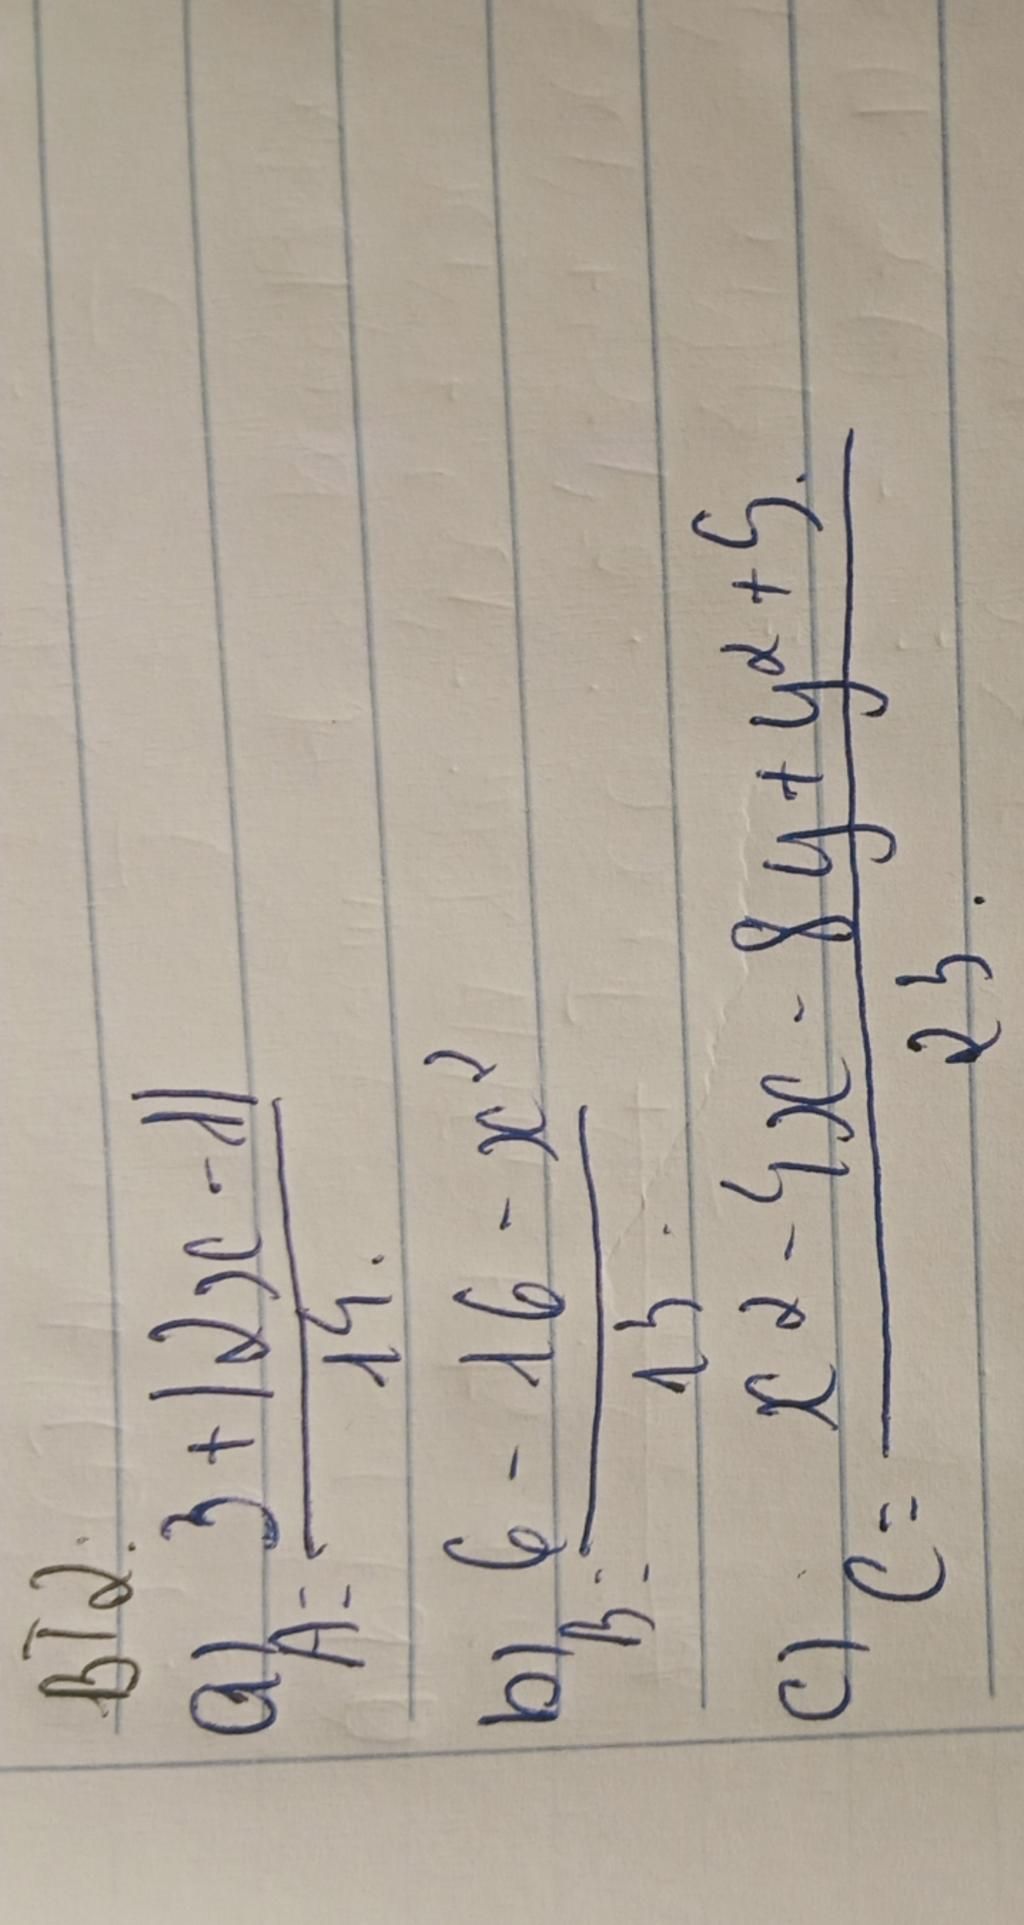 BT2:
a) A = (3 + |2x - 1|)/(14).
b) B = (6 - |6 - x²)/(13).
c) C = (x² - 4x - 8y + y² + 5.)/(23).